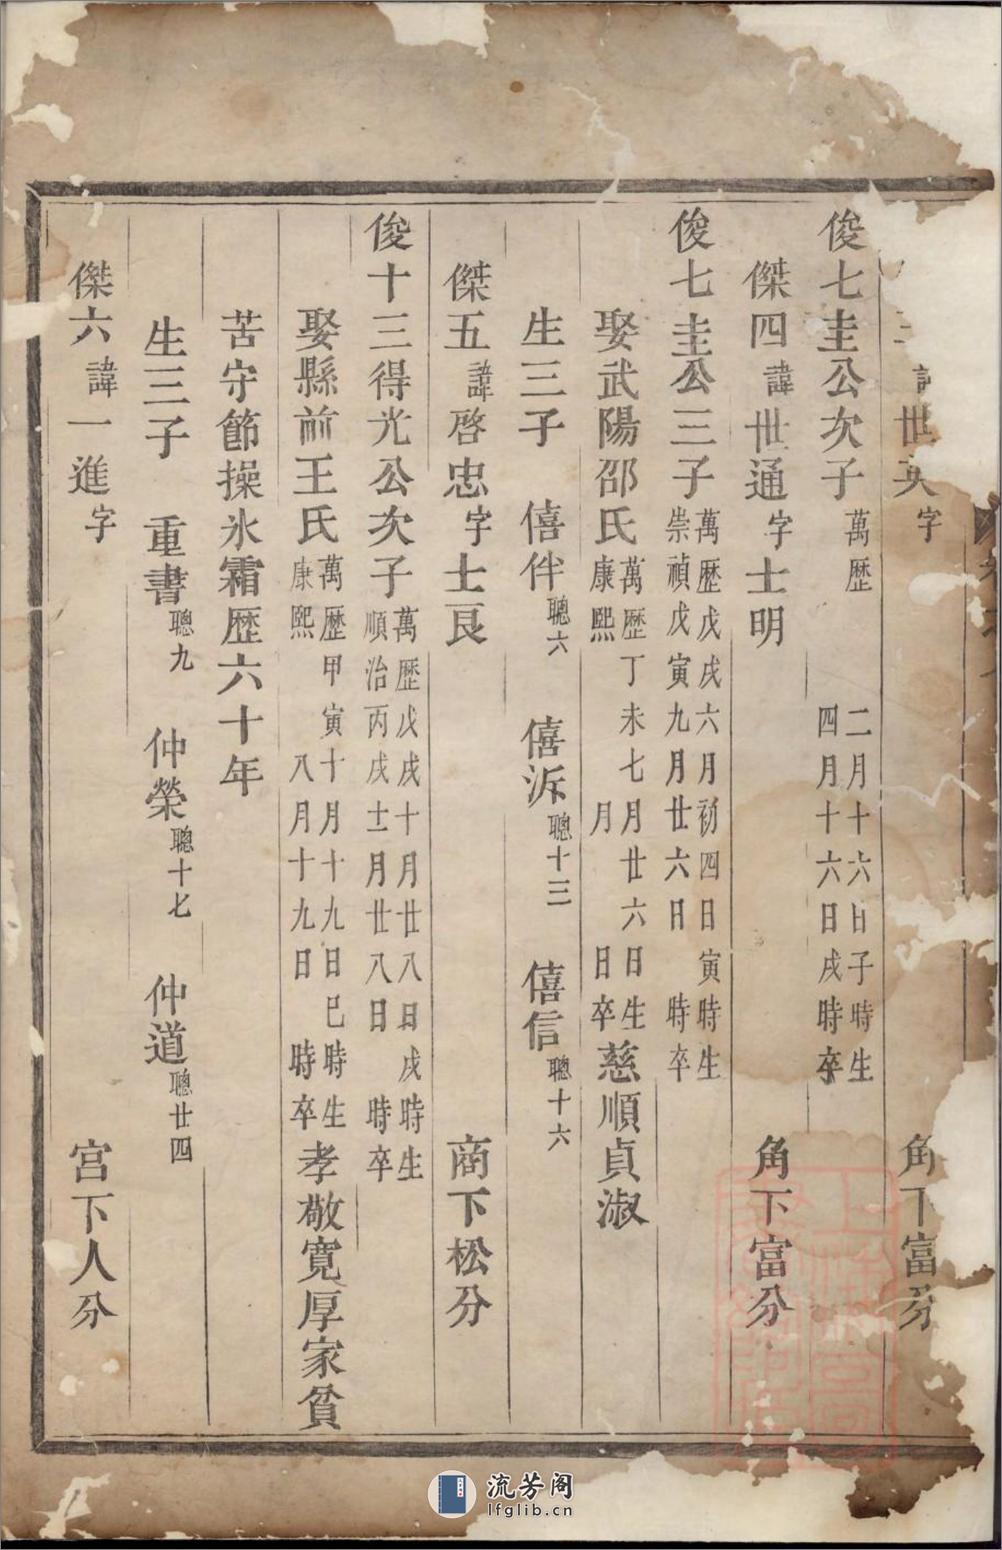 世英字 角下富分
俊七圭公次子 萬歷 二月十六日子時生 四月十六日戌時卒
傑四 諱世通字士明 角下富分
俊七圭公三子 萬歷戊戌六月初四日寅時生 崇禎戊寅九月廿六日 時卒
娶武陽邵氏 萬歷丁未七月廿六日生 康熙 月 日卒 慈順貞淑
生三子 僖伴聰六 僖泝聰十三 僖信聰十六
傑五 諱啓忠字士良 商下松分
俊十三得光公次子 萬歷戊戌十月廿八日戌時生 順治丙戌十二月廿八日 時卒
娶縣前王氏 萬歷甲寅十月十九日巳時生 康熙 八月十九日 時卒 孝敬寬厚家貧
苦守節操氷霜歷六十年
生三子 重書聰九 仲榮聰十七 仲道聰廿四
傑六 諱一進字 宫下人分
流芳阁
lfglib.cn